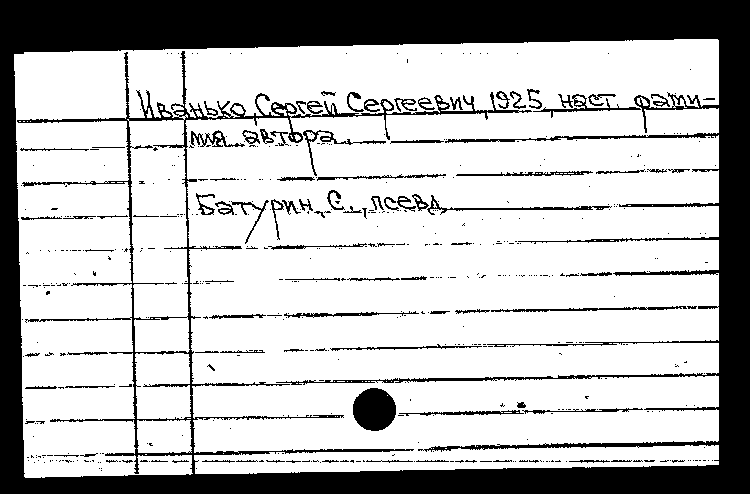 Иванько, Сергей Сергеевич, 1925, наст. фами-
лия автора.
Батурин, С., псевд.